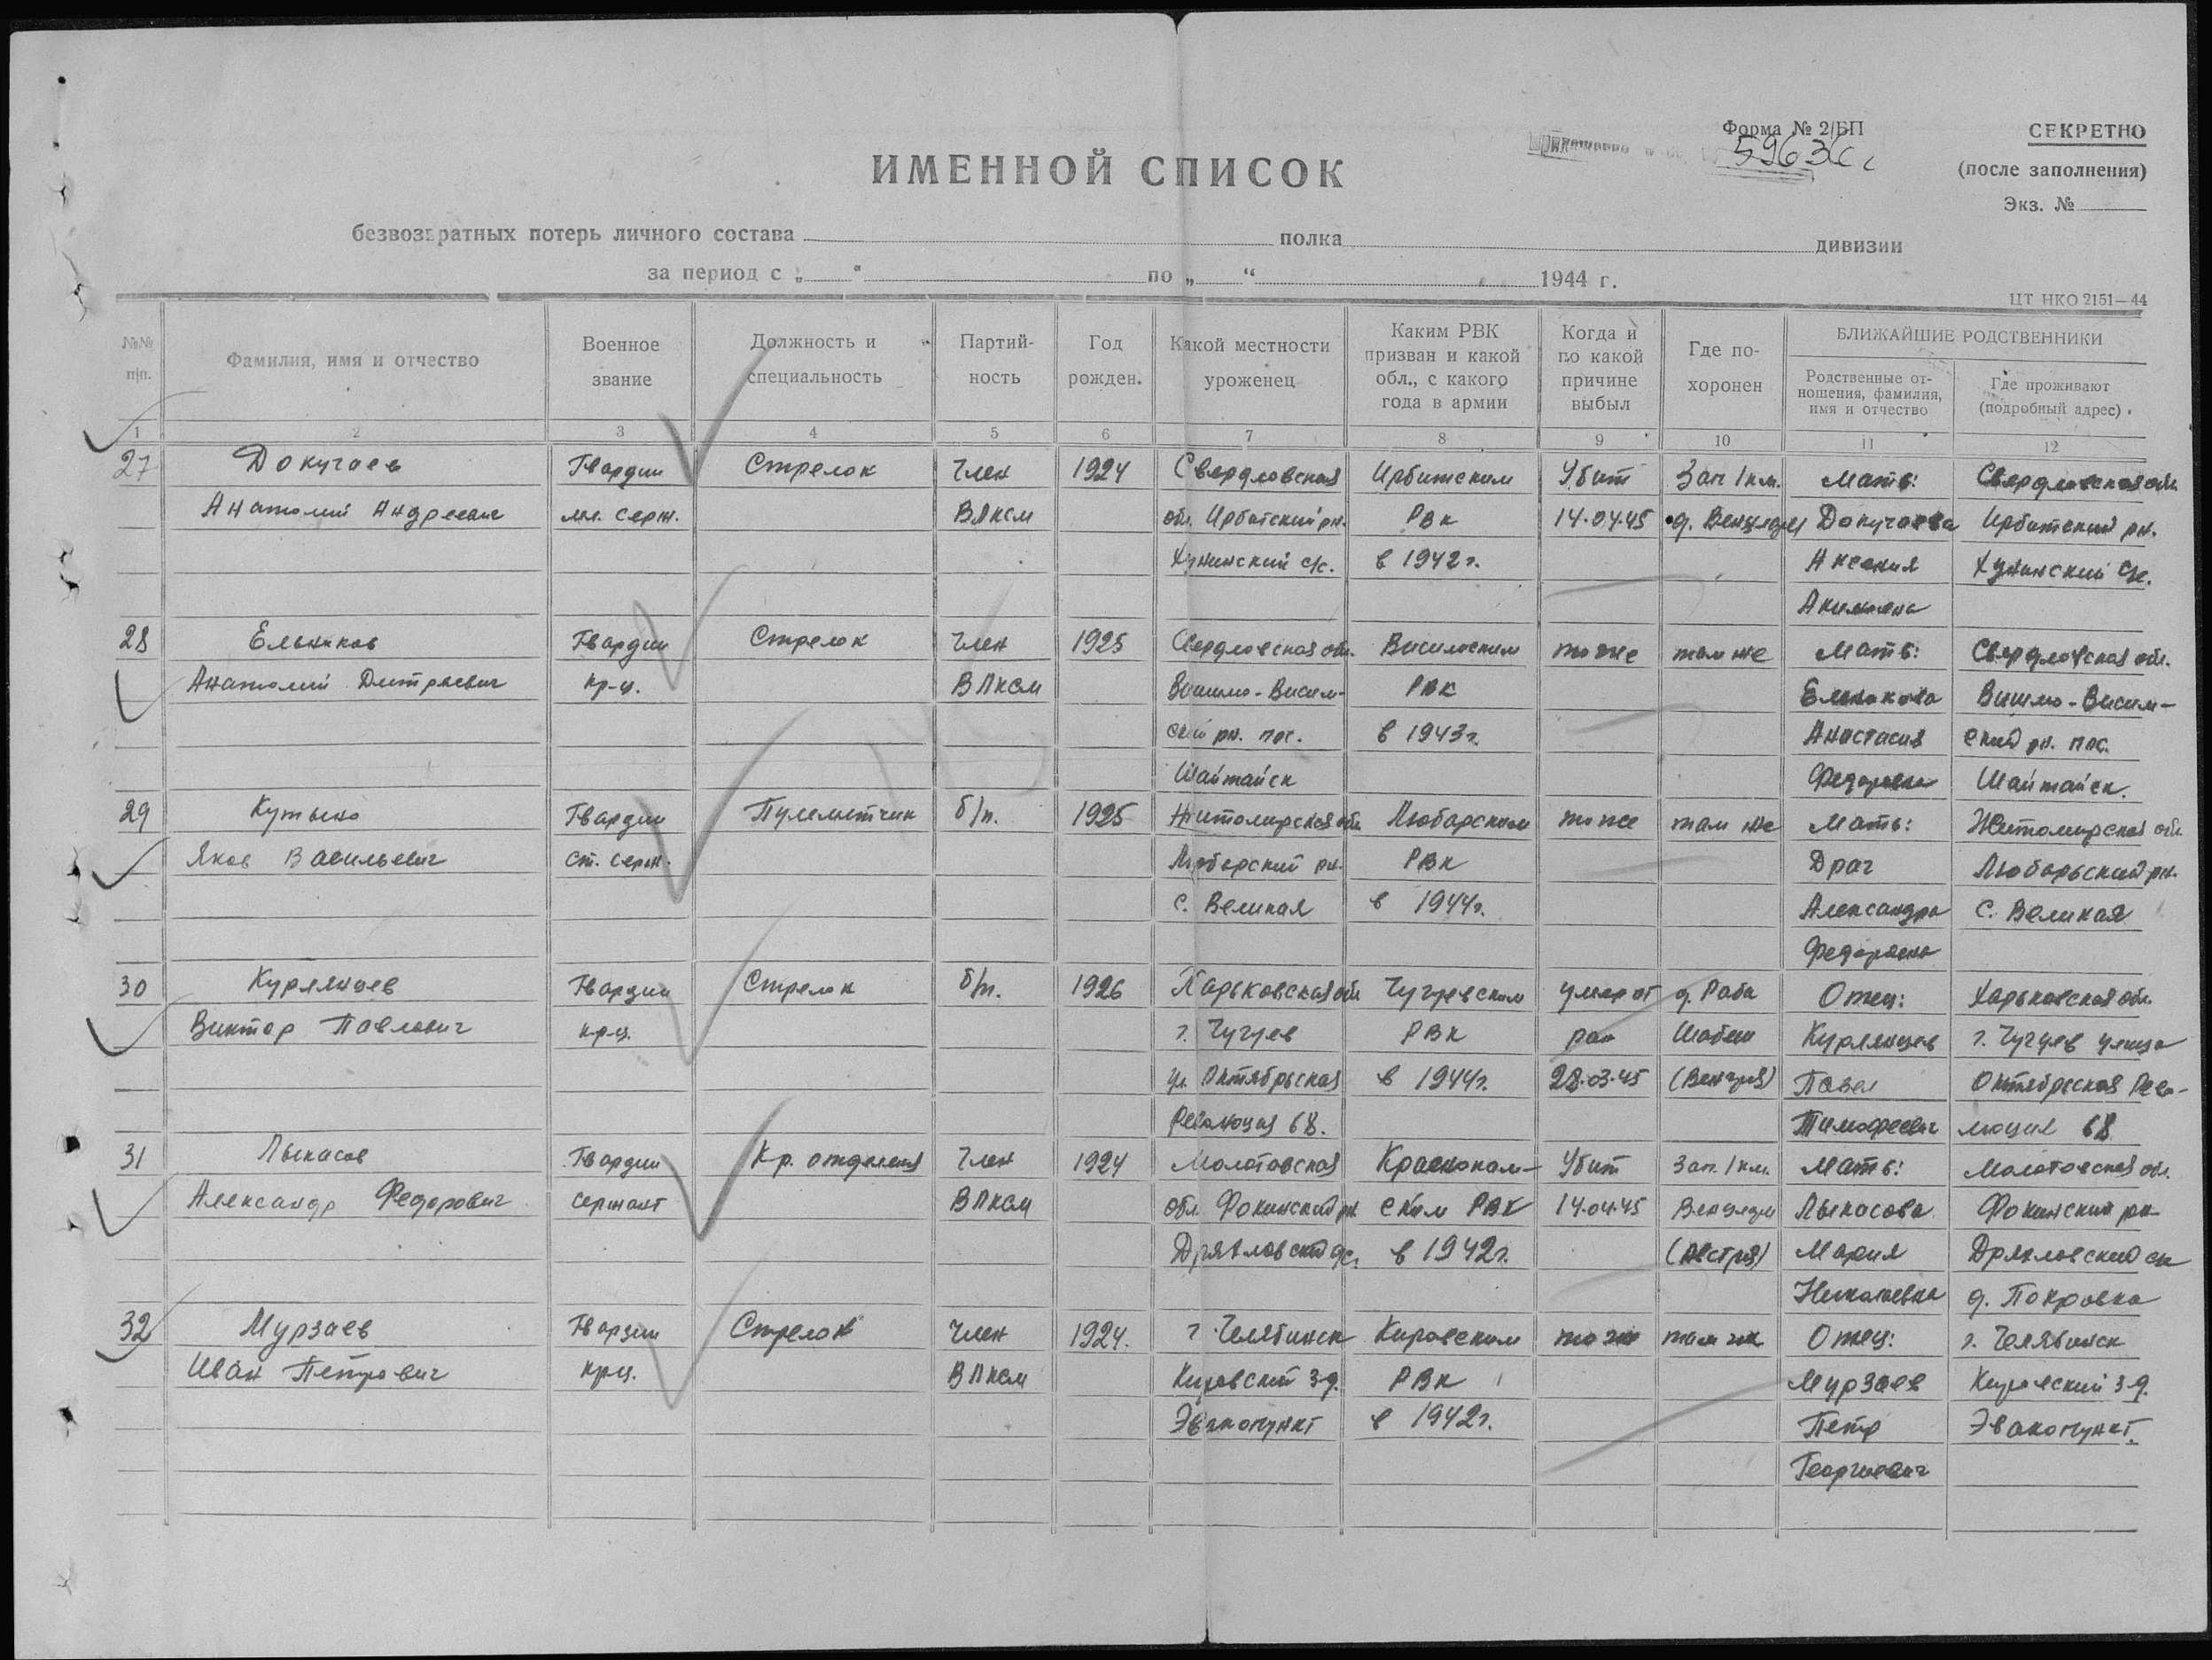 Форма № 2/БП
СЕКРЕТНО
5963с
(после заполнения)
Экз. №
ИМЕННОЙ СПИСОК
безвозвратных потерь личного состава полка дивизии
за период с „ “ по „ “ 1944 г.
ЦТ НКО 2151—44
№№ п/п. Фамилия, имя и отчество Военное звание Должность и специальность Партийность Год рожден. Какой местности уроженец Каким РВК призван и какой обл., с какого года в армии Когда и по какой причине выбыл Где похоронен БЛИЖАЙШИЕ РОДСТВЕННИКИ
Родственные отношения, фамилия, имя и отчество Где проживают (подробный адрес)
1 2 3 4 5 6 7 8 9 10 11 12
27 Докучаев Гвардии Стрелок Член 1924 Свердловская Ирбитским Убит Зап 1 км. Мать: Свердловская обл.
Анатолий Андреевич мл. серж. ВЛКСМ обл. Ирбитский рн. РВК 14.04.45 д. Докучаева Ирбитский рн.
с/с. в 1942 г. Аксения с/с.
Акимовна
28 Ельников Гвардии Стрелок Член 1925 Свердловская обл. Висимским то же там же Мать: Свердловская обл.
Анатолий Дмитриевич кр-ц. ВЛКСМ Висимо- РВК Ельникова Висимо-
ский рн. пос. в 1943 г. Анастасия ский рн. пос.
Шайтанск Федоровна Шайтанск.
29 Гвардии Пулеметчик б/п. 1925 Житомирская обл. Любарским то же там же Мать: Житомирская обл.
Яков Васильевич ст. серж. Любарский рн. РВК Драч Любарьский рн.
с. Великая в 1944 г. Александра с. Великая
Федоровна
30 Курлянцев Гвардии Стрелок б/п. 1926 Харьковская обл Чугуевским умер от д. Раба Отец: Харьковская обл.
Виктор Павлович кр-ц. г. Чугуев РВК ран Курлянцев г. Чугуев улица
ул. Октябрьская в 1944 г. 28.03.45 (Венгрия) Павел Октябрьская Рево-
Революция 68. Тимофеевич люция 68
31 Лыкасов Гвардии Кр. отделения Член 1924 Молотовская Краснокам- Убит Зап. 1 км. Мать: Молотовская обл.
Александр Федорович сержант ВЛКСМ обл. Фокинский рн. ским РВК 14.04.45 Лыкасова Фокинский рн
в 1942 г. (Австрия) Мария
Николаевна д. Покровка
32 Мурзаев Гвардии Стрелок Член 1924. г. Челябинск Кировским то же там же Отец: г. Челябинск
Иван Петрович кр-ц. ВЛКСМ Кировский з-д. РВК Мурзаев Кировский з-д.
Эвакопункт в 1942 г. Петр Эвакопункт.
Георгиевич